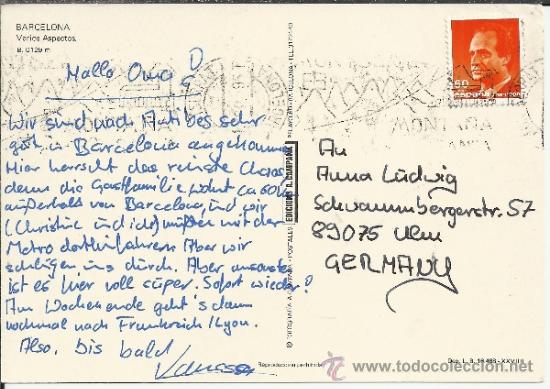 BARCELONA
Varios Aspectos.
B. 0129 m
Hallo Oma!
Wir sind nach Antibes sehr
gut in Barcelona angekommen
Hier herrscht das reinste Chaos
denn die Gastfamilie wohnt ca 60km
außerhalb von Barcelona, und wir
(Christine und ich) müßen mit der
Metro dorthinfahren. Aber wir
schlagen uns durch. Aber ansonsten
ist es hier voll super. Sofort wieder!
Am Wochenende geht's dann
nochmal nach Frankreich/Lyon.
Also, bis bald
Vanessa
EDICIONS A. CAMPAÑA
An
Anna Ludwig
Schwammbergerstr. 57
89075 Ulm
GERMANY
ESPAÑA
MONTAÑA
Reproducción prohibida
Dep. L. B.
todocoleccion.net